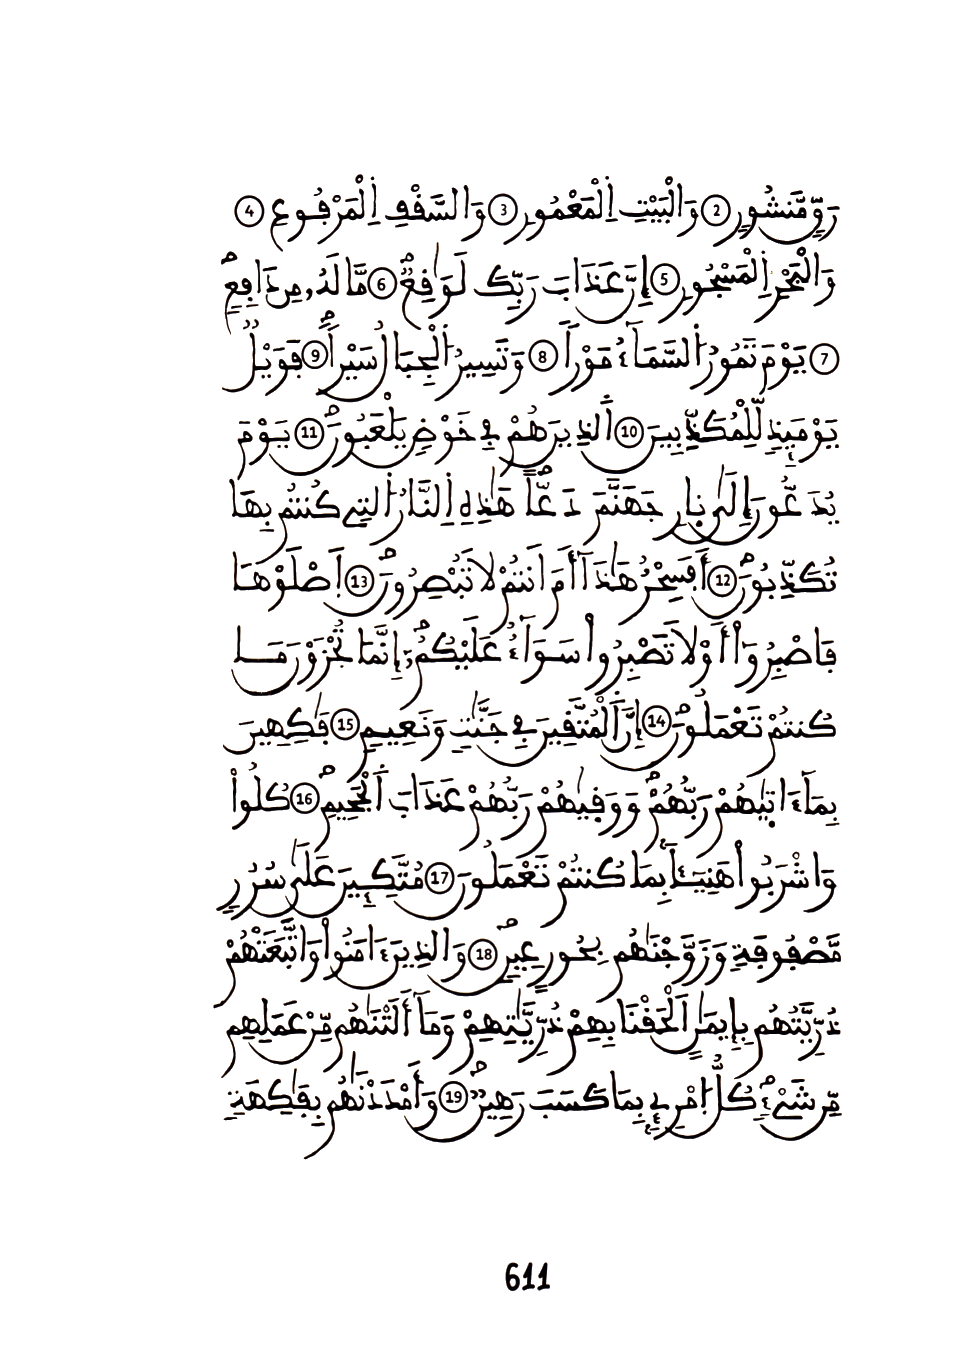 رَقٍّ مَّنشُورٍ 2 وَالْبَيْتِ اِ۬لْمَعْمُورِ 3 وَالسَّقْفِ اِ۬لْمَرْفُوعِ 4
وَالْبَحْرِ اِ۬لْمَسْجُورِ 5 إِنَّ عَذَابَ رَبِّكَ لَوَٰقِعٞ 6 مَّا لَهُۥ مِن دَافِعٖ
7 يَوْمَ تَمُورُ اُ۬لسَّمَآءُ مَوْراٗ 8 وَتَسِيرُ اُ۬لْجِبَالُ سَيْراٗ 9 فَوَيْلٞ
يَوْمَئِذٖ لِّلْمُكَذِّبِينَ 10 اَ۬لذِينَ هُمْ فِي خَوْضٖ يَلْعَبُونَ 11 يَوْمَ
يُدَعُّونَ إِلَىٰ نِارِ جَهَنَّمَ دَعّاً هَٰذِهِ اِ۬لنَّارُ اُ۬لتِي كُنتُم بِهَا
تُكَذِّبُونَ 12 أَفَسِحْرٌ هَٰذَآ أَمَ اَنتُمْ لَا تُبْصِرُونَ 13 اَ۪صْلَوْهَا
فَاصْبِرُوٓاْ أَوْ لَا تَصْبِرُواْ سَوَآءٌ عَلَيْكُمُۥٓ إِنَّمَا تُجْزَوْنَ مَا
كُنتُمْ تَعْمَلُونَ 14 إِنَّ اَ۬لْمُتَّقِينَ فِي جَنَّٰتٖ وَنَعِيمٖ 15 فَٰكِهِينَ
بِمَآ ءَاتٜيٰهُمْ رَبُّهُمْ وَوَقٜيٰهُمْ رَبُّهُمْ عَذَابَ اَ۬لْجَحِيمِ 16 كُلُواْ
وَاشْرَبُواْ هَنِيٓـٔاَۢ بِمَا كُنتُمْ تَعْمَلُونَ 17 مُتَّكِـِٔينَ عَلَىٰ سُرُرٖ
مَّصْفُوفَةٖ وَزَوَّجْنَٰهُم بِحُورٍ عِينٖ 18 وَالذِينَ ءَامَنُواْ وَاتَّبَعَتْهُمْ
ذُرِّيَّتُهُم بِإِيمَٰنٍ اَلْحَقْنَا بِهِمْ ذُرِّيَّٰتِهِمْ وَمَآ أَلَتْنَٰهُم مِّنْ عَمَلِهِم
مِّن شَےْءٖ كُلُّ اُ۪مْرِےِٕۢ بِمَا كَسَبَ رَهِينٞ 19 وَأَمْدَدْنَٰهُم بِفَٰكِهَةٖ
611